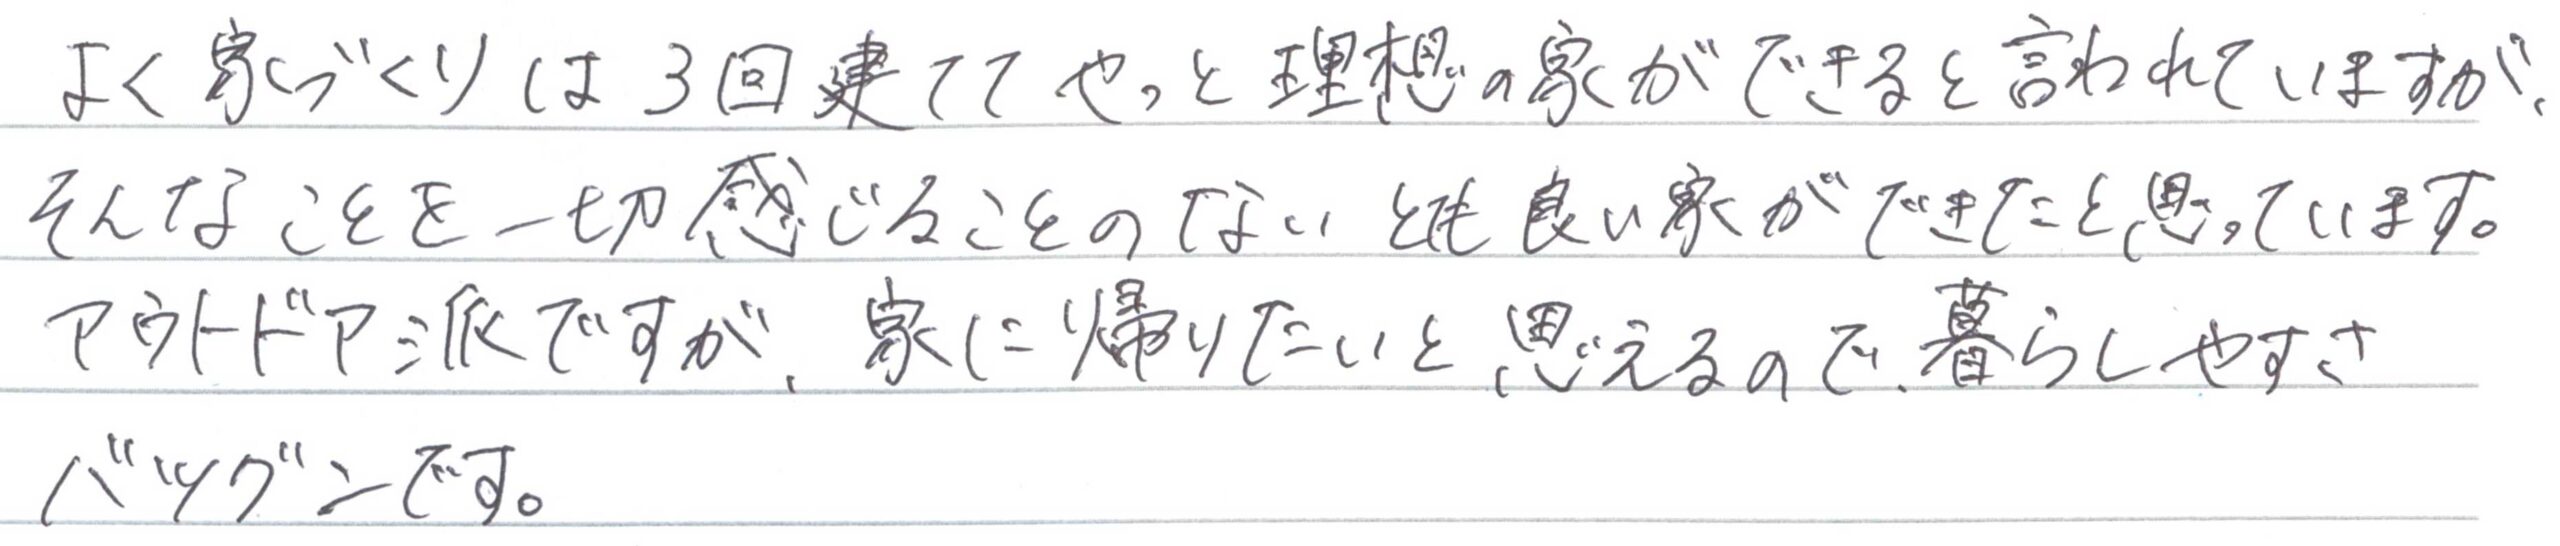 よく家づくりは3回建ててやっと理想の家ができると言われていますが、
そんなことを一切感じることのないとても良い家ができたと思っています。
アウトドア派ですが、家に帰りたいと思えるので、暮らしやすさ
バツグンです。